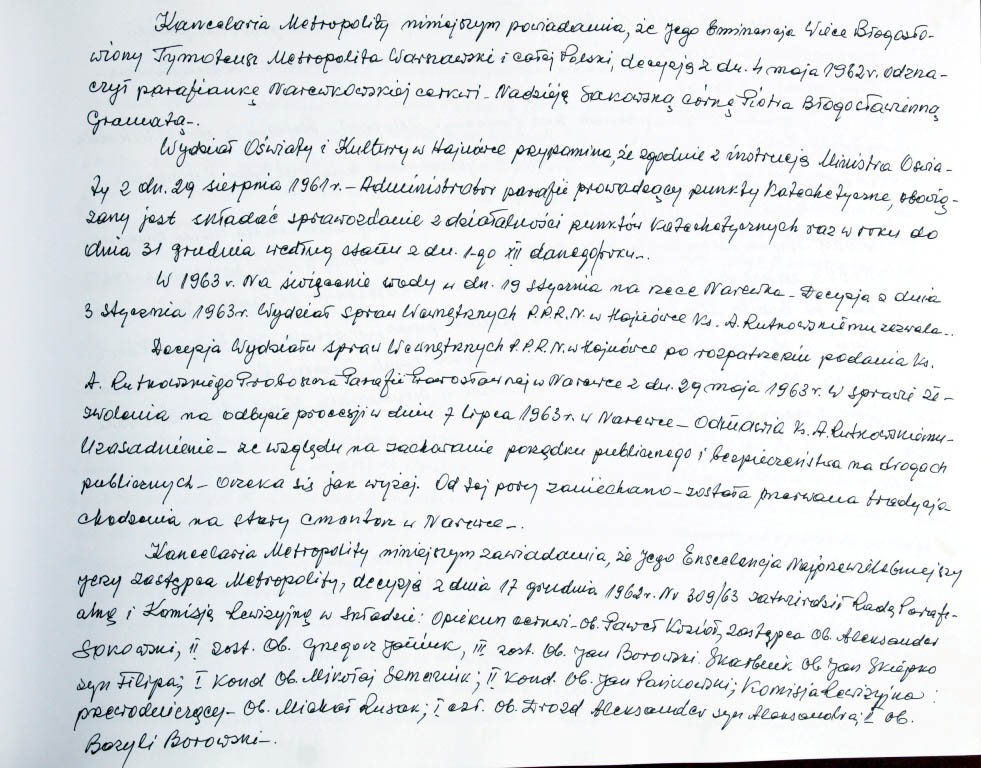 Kancelaria Metropolity niniejszym powiadamia, że Jego Eminencja Wiece Błogosło-
wiony Tymoteusz Metropolita Warszawski i całej Polski, decyzją z dn. 4 maja 1962 r. odzna-
czył parafiankę Narewkowskiej cerkwi - Nadzieję Sakowską córkę Piotra Błogosławienną
Gramatą -.
Wydział Oświaty i Kultury w Hajnówce przypomina, że zgodnie z instrucją Ministra Oświa-
ty z dn. 29 sierpnia 1961 r. - Administrator parafii prowadzący punkty Katechetyczne, obowią-
zany jest składać sprawozdanie z działalności punktów Katechetycznych raz w roku do
dnia 31 grudnia według stanu z dn. 1-go XII danego roku -.
W 1963 r. Na święcenie wody w dn. 19 stycznia na rzece Narewka - Decyzja z dnia
3 stycznia 1963 r. Wydział Spraw Wewnętrznych P.P.R.N. w Hajnówce Ks. A. Rutkowskiemu zezwala -.
Decyzja Wydziału Spraw Wewnętrznych P.P.R.N. w Hajnówce po rozpatrzeniu podania Ks.
A. Rutkowskiego Proboszcza Parafii Prawosławnej w Narewce z dn. 29 maja 1963 r. w sprawie ze-
zwolenia na odbycie procesji w dniu 7 lipca 1963 r. w Narewce - Odmawia Ks. A. Rutkowskiemu -
Uzasadnienie - ze względu na zachowanie porządku publicznego i bezpieczeństwa na drogach
publicznych - Orzeka się jak wyżej. Od tej pory zaniechano - została przerwana tradycja
chodzenia na stary cmentarz w Narewce -.
Kancelaria Metropolity niniejszym zawiadamia, że Jego Enscelencja Najprzewielebniejszy
Jerzy zastępca Metropolity, decyzją z dnia 17 grudnia 1962 r. Nr 309/63 zatwierdził Radę Parafi-
alną i Komisją Rewizyjną w składzie: Opiekun cerkwi - Ob. Paweł Kozioł, zastępca Ob. Aleksander
Sakowski, II zast. Ob. Gregorz Jańiuk, III zast. Ob. Jan Borowski. Skarbnik Ob. Jan Skiepko
syn Filipa; I Kand Ob. Mikołaj Semeniuk; II Kand. Ob. Jan Paśkowski; Komisja Rewizyjna:
przewodniczący - Ob. Michał Rusak; I czł. Ob. Drozd Aleksander syn Aleksandra; II Ob.
Bazyli Borowski -.